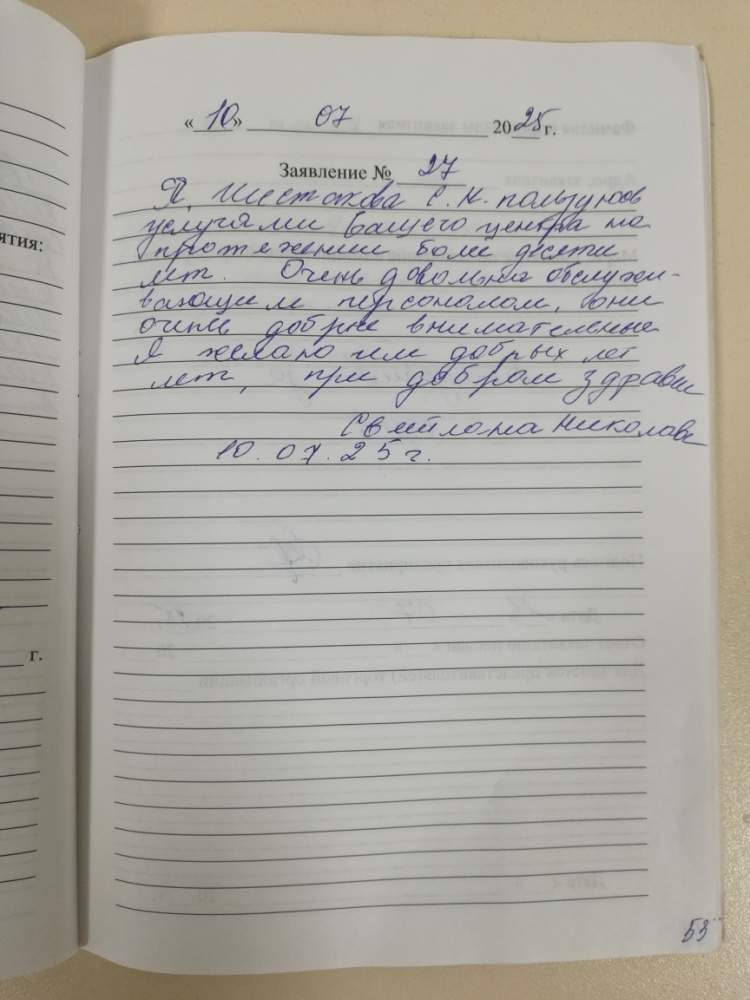 « 10 » 07 2025 г.
Заявление № 27
Я, Шестакова С. Н. пользуюсь
услугами вашего центра на
протежении боли десяти
лет. Очень довольна обслужи-
вающим персоналом, они
очень добрые внимательные
Я желаю им добрых лет
лет, при добром здравии
Светлана Николаев
10.07.25 г.
ятия:
г.
53